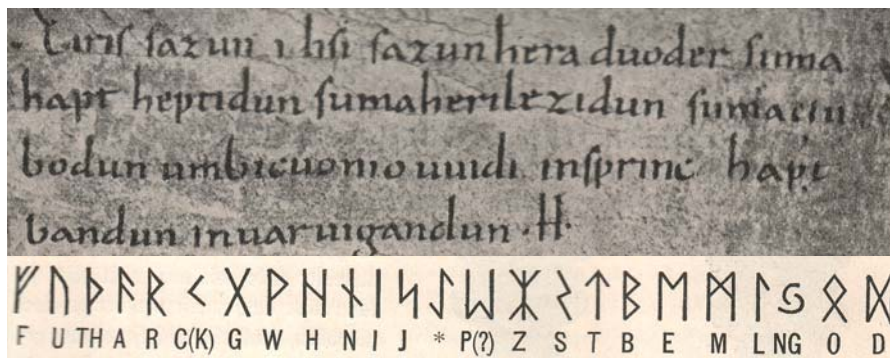 Eiris sazun idisi sazun hera duoder suma
hapt heptidun suma heri lezidun suma clu
bodun umbi cuonio uuidi insprinc hapt
bandun inuar uigandun ·H·
ᚠ ᚢ ᚦ ᚨ ᚱ ᚲ ᚷ ᚹ ᚺ ᚾ ᛁ ᛃ ᛇ ᛈ ᛉ ᛊ ᛏ ᛒ ᛖ ᛗ ᛚ ᛜ ᛟ ᛞ
F U TH A R C(K) G W H N I J * P(?) Z S T B E M L NG O D